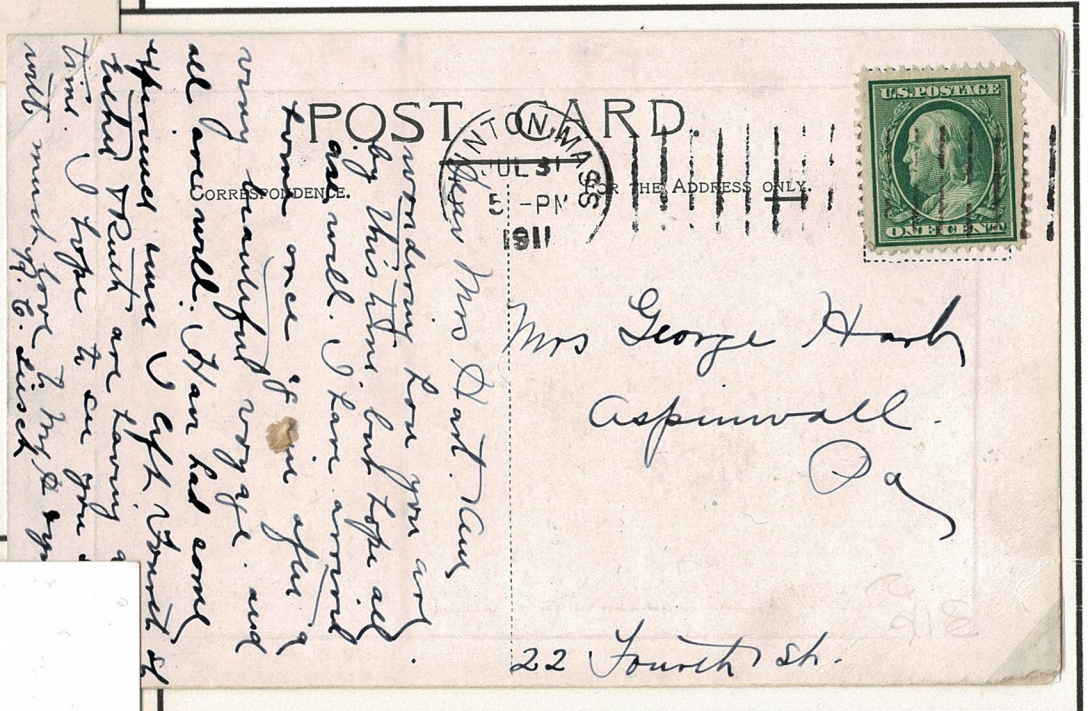 POST CARD
CORRESPONDENCE.
FOR THE ADDRESS ONLY.
U.S. POSTAGE
ONE CENT
NTON, MASS
JUL 31
5 - PM
1911
Mrs George Hart
Aspinwall.
Pa
22 Fourth St.
Dear Mrs Hart. Am
wondering how you are
by this time but hope all
are well. I have arrived
home once again after a
very beautiful voyage and
all are well. Han had some
since I left. Fourth of
Esther & Ruth are having a
time. I hope to see you
with much love to Mr H